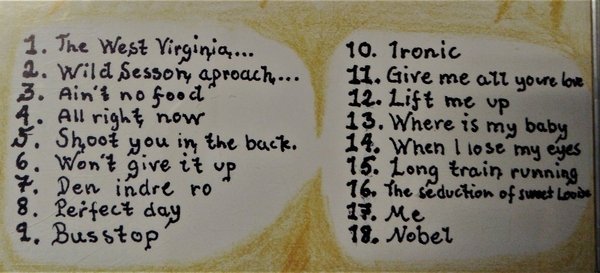 1. The West Virginia...
2. Wild Sesson, aproach,...
3. Ain't no food
4. All right now
5. Shoot you in the back.
6. Won't give it up
7. Den indre ro
8. Perfect day
9. Busstop
10. Ironic
11. Give me all youre love
12. Lift me up
13. Where is my baby
14. When I lose my eyes
15. Long train running
16. The seduction of sweet Louise
17. Me
18. Nobel